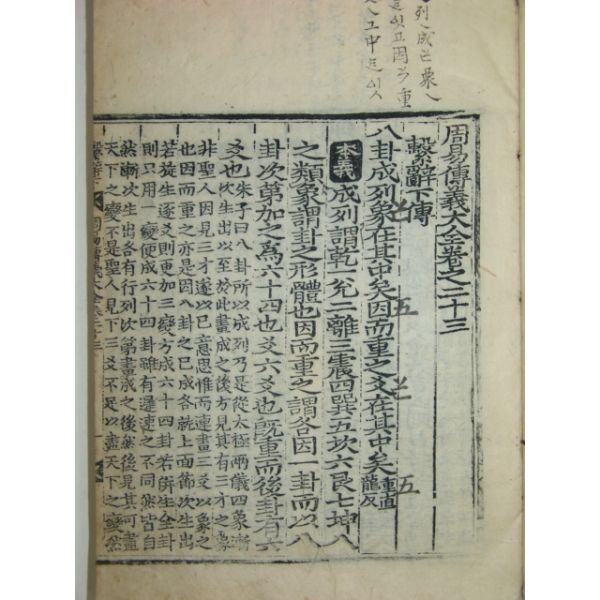 列、成은衆人
周易傳義大全卷之二十三
繫辭下傳
八卦成列象在其中矣因而重之爻在其中矣重直龍反
本義 成列謂乾一兌二離三震四巽五坎六艮七坤八
之類象謂卦之形體也因而重之謂各因一卦而以八
卦次第加之爲六十四也爻六爻也旣重而後卦有六
爻也 朱子曰八卦所以成列乃是從太極兩儀四象漸
次生出以至於此畫成之後方見其有三才之象
非聖人因見三才遂以己意思惟而連畫三爻以象之
也因而重之亦是因八卦之已成各就上面節次生出
若旋生逐爻則更加三變方成六十四卦若倂生全卦
則只用一變便成六十四卦雖有遲速之不同然皆自
然漸次生出各有行列次第畫成之後然後見其可盡
天下之變不是聖人見下三爻不足以盡天下之變然